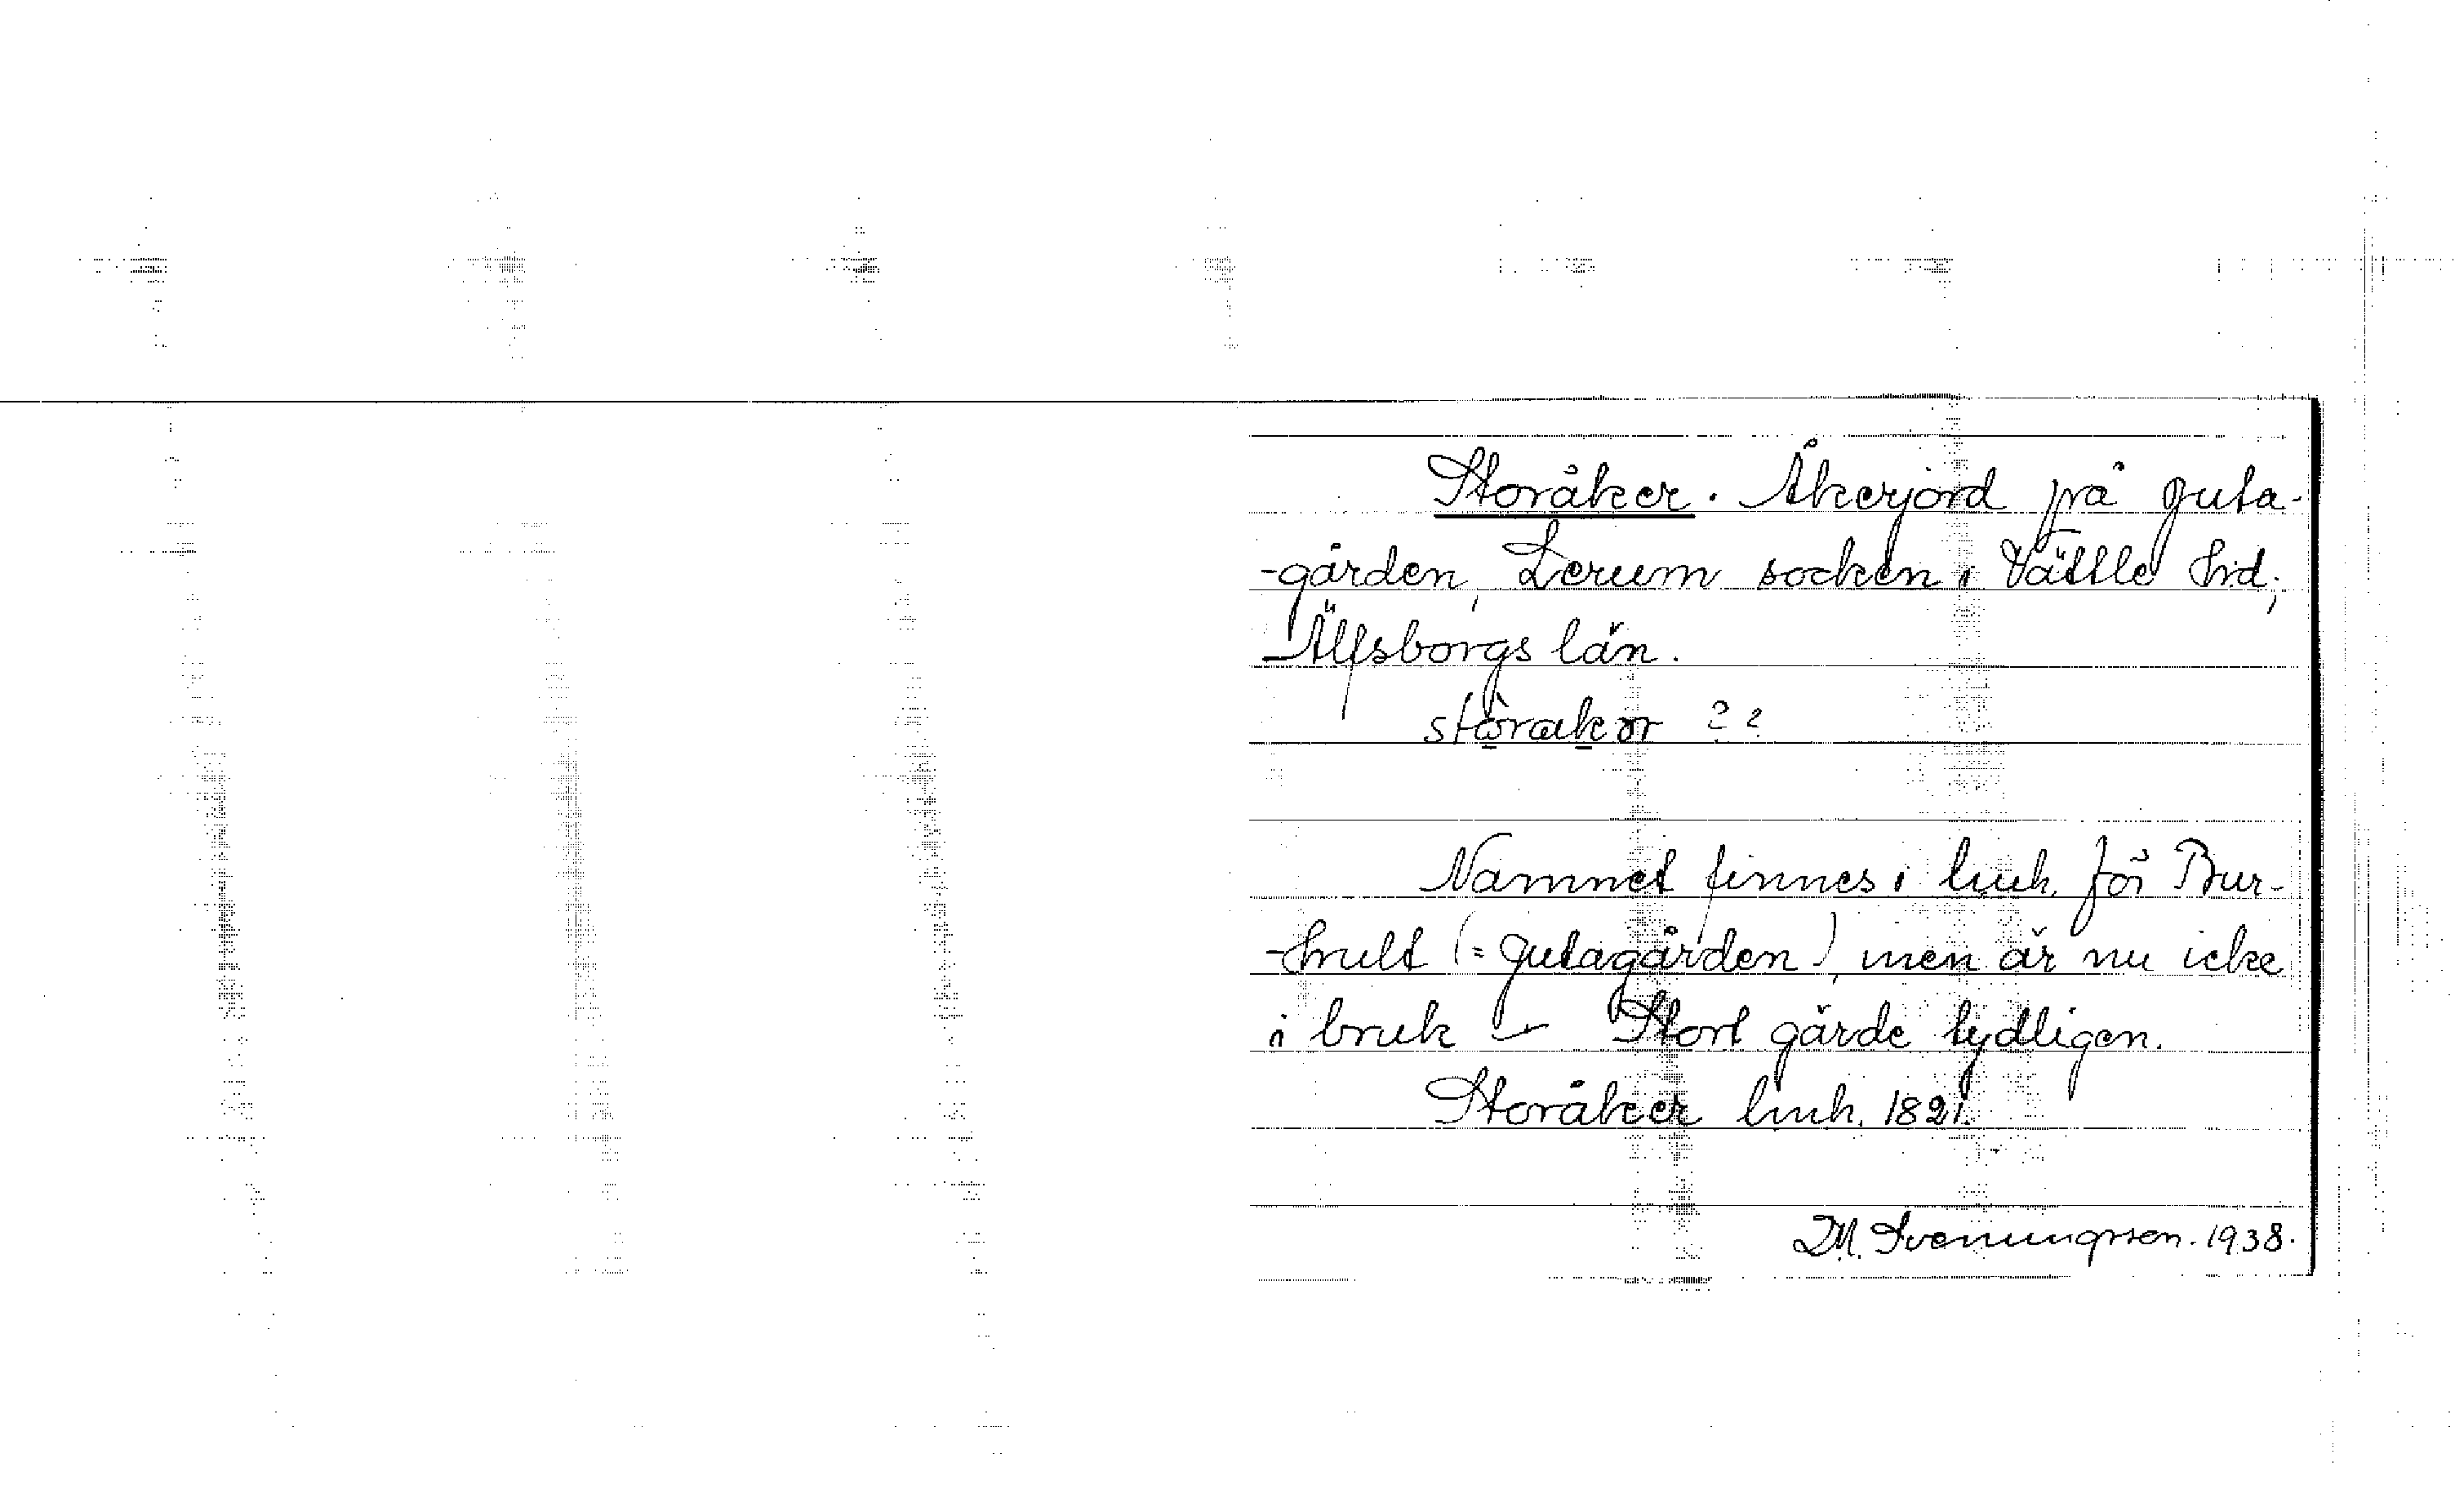 Storåker. Åkerjord på guta-
-gården, Lerum socken i Vättle hrd;
Älfsborgs län.
storakər ? ?
Namnet finnes i lmh. för Bur-
-hult (= gutagården), men är nu icke
i bruk - Stort gärde tydligen.
Storåker lmh. 1821.
M. Svenungsson. 1938.